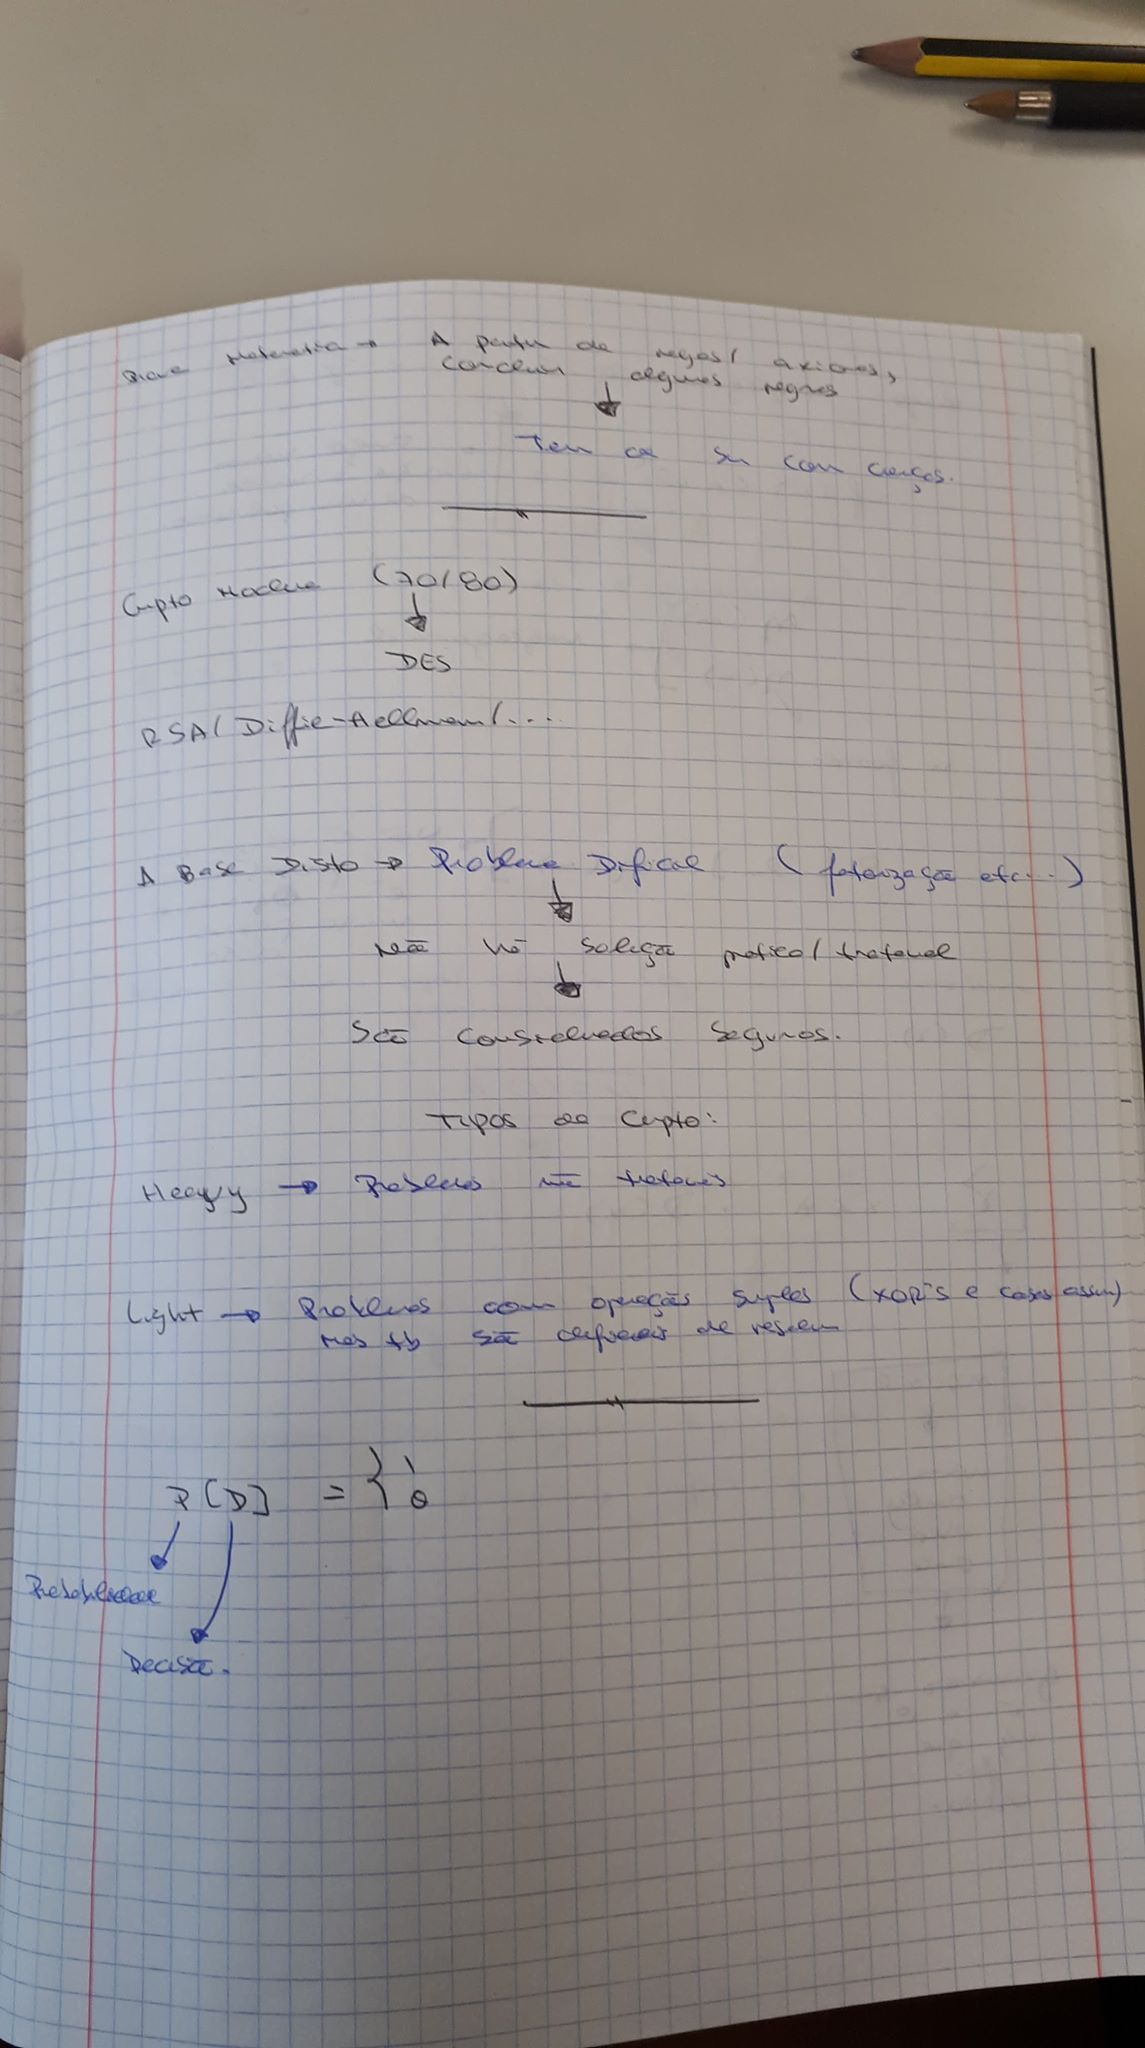 Prova Matemática → A partir de regras/ axiomas,
concluir algumas regras
Tem de ser com
Cripto Moderna (70/80)
DES
RSA/ Diffie-Hellman/....
A Base Disto → Problema Dificil (fatorização etc...)
Não há solução prática/ tratavel
São considerados seguros.
Tipos de Cripto:
Heavy → Problemas não trataveis
Light → Problemas com operações simples (XOR's e coisas assim)
mas tb são dificeis de resolver
P[D] = { 1
0
Probabilidade
Decisão.